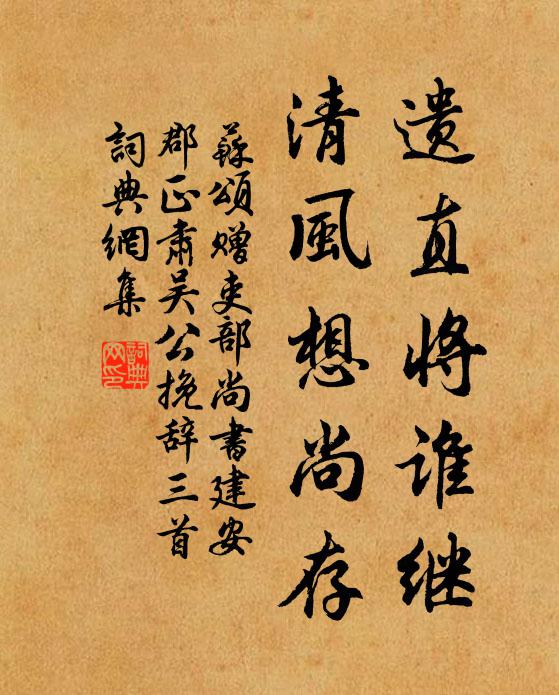 遗直将谁继
清風想尚存
蘇颂赠吏部尚書建安
郡正肃吴公挽辞三首
詞典網集
詞典
网印